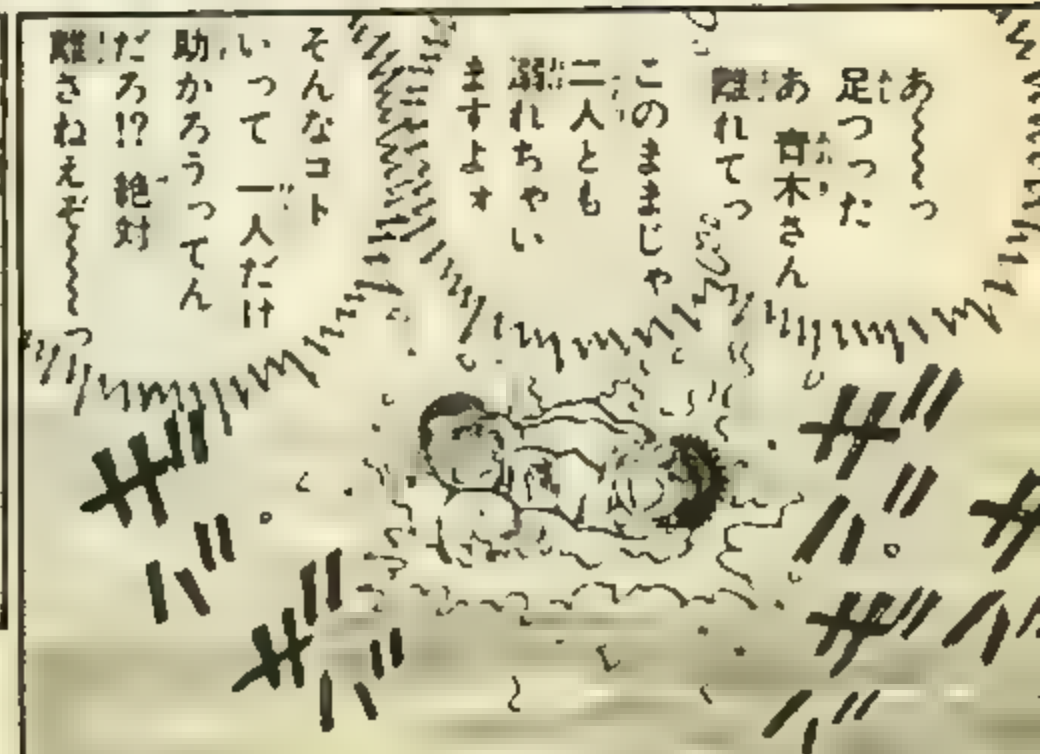 あ〜〜〜っ
足つった
あ 青木さん
離れてっ
このままじゃ
二人とも
溺れちゃい
ますよォ
そんなコト
いって 一人だけ
助かろうってん
だろ!? 絶対
離さねぇぞ〜〜〜っ
ザバ
ザバ
ザ
ザバ
ザバ